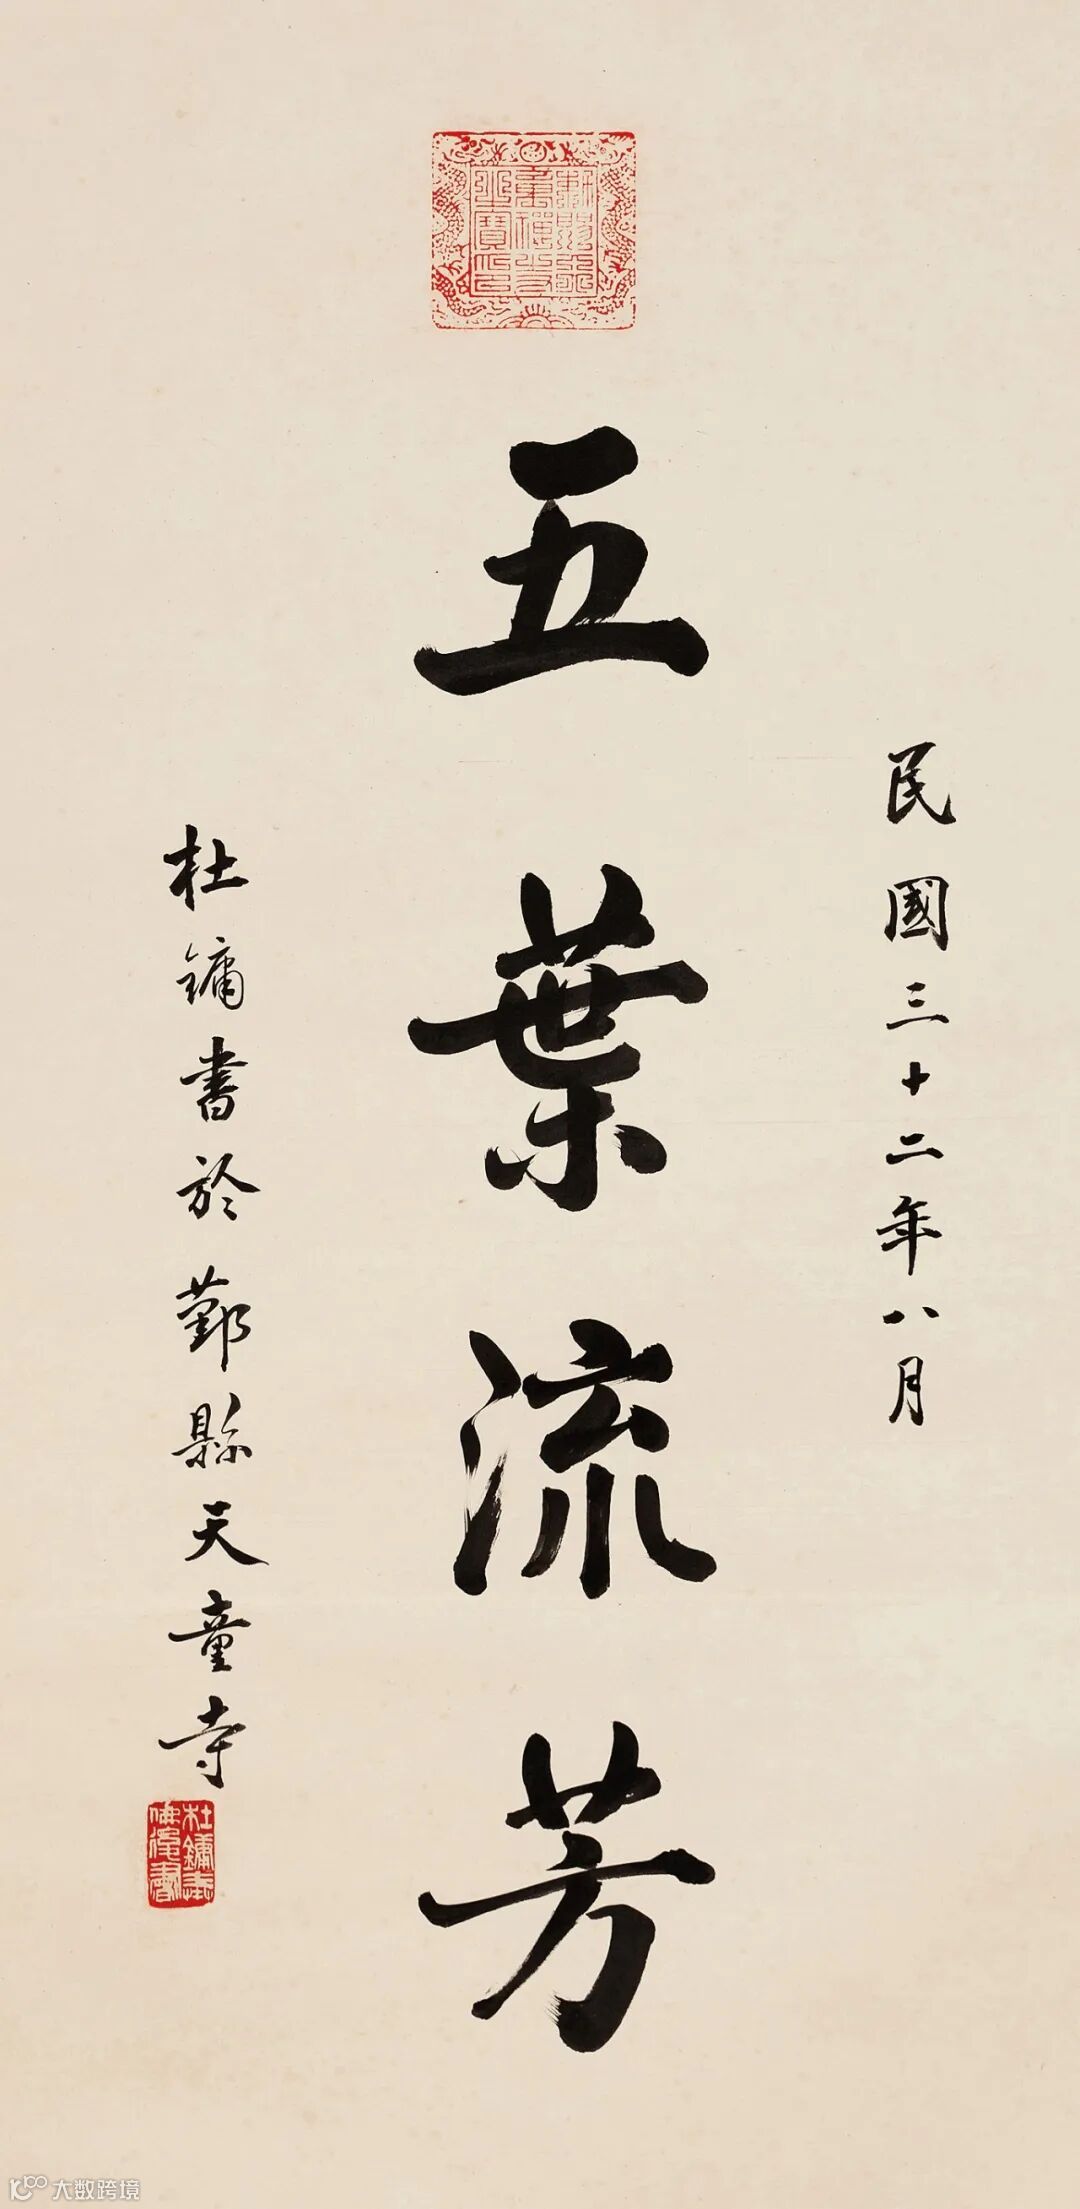 民國三十二年八月
五葉流芳
杜鏞書於鄞縣天童寺
大数跨境